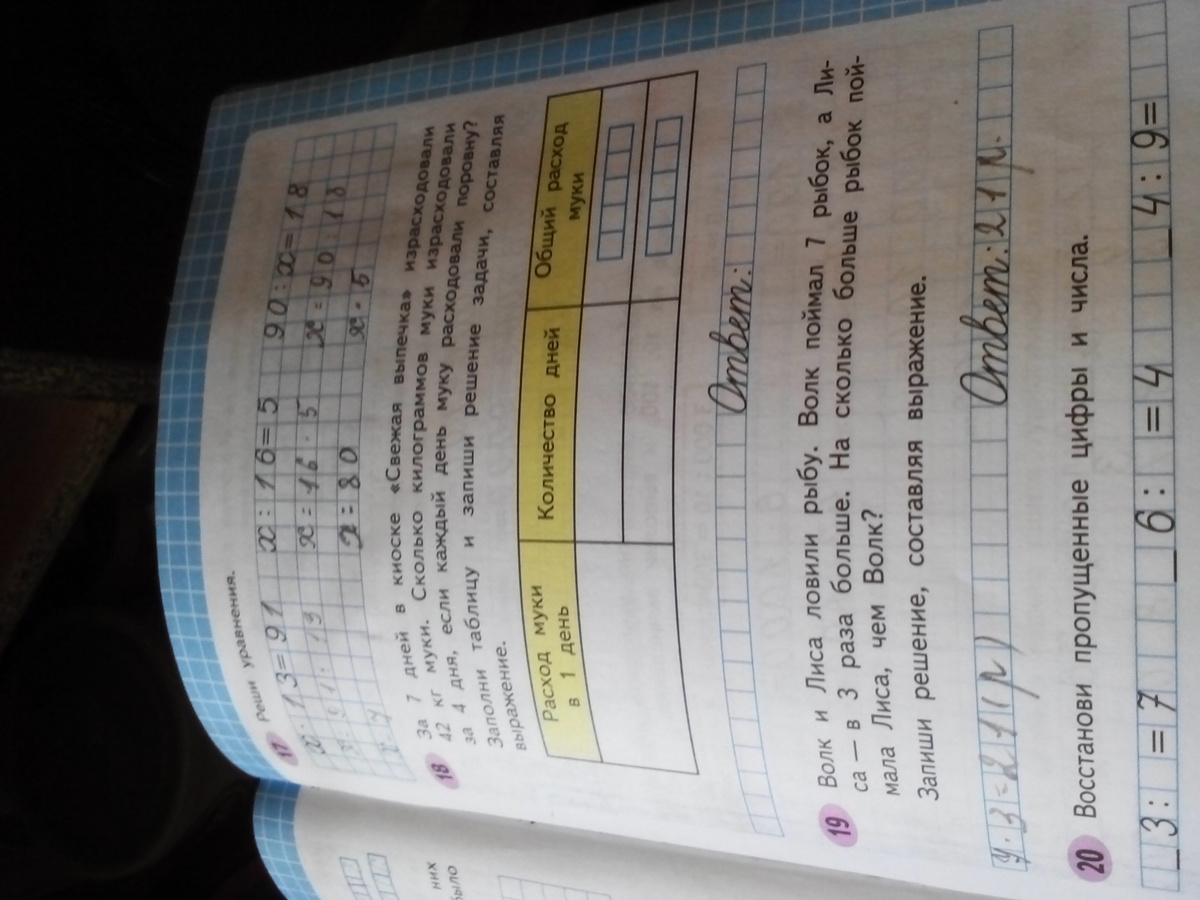 17 Реши уравнения.
х · 13 = 91 х : 16 = 5 90 : х = 18
х = 16 · 5 х = 90 18
х = 80 х = 5
18 За 7 дней в киоске «Свежая выпечка» израсходовали
42 кг муки. Сколько килограммов муки израсходовали
за 4 дня, если каждый день муку расходовали поровну?
Заполни таблицу и запиши решение задачи, составляя
выражение.
Расход муки Количество дней Общий расход
в 1 день муки
Ответ:
19 Волк и Лиса ловили рыбу. Волк поймал 7 рыбок, а Ли-
са — в 3 раза больше. На сколько больше рыбок пой-
мала Лиса, чем Волк?
Запиши решение, составляя выражение.
7 · 3 = 21 (р) Ответ: 21 р.
20 Восстанови пропущенные цифры и числа.
_3: =7 _6: =4 _4:9=
них
было